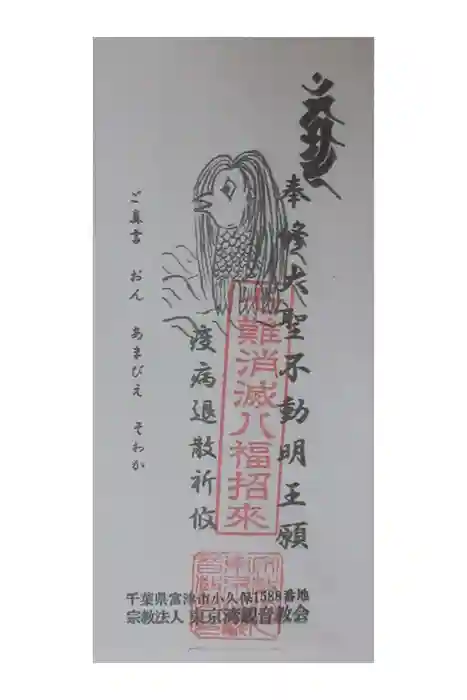 奉修大聖不動明王願
七難消滅八福招來
疫病退散祈攸
ご真言 おん あまびえ そわか
千葉県富津市小久保1588番地
宗教法人 東京湾観音教会